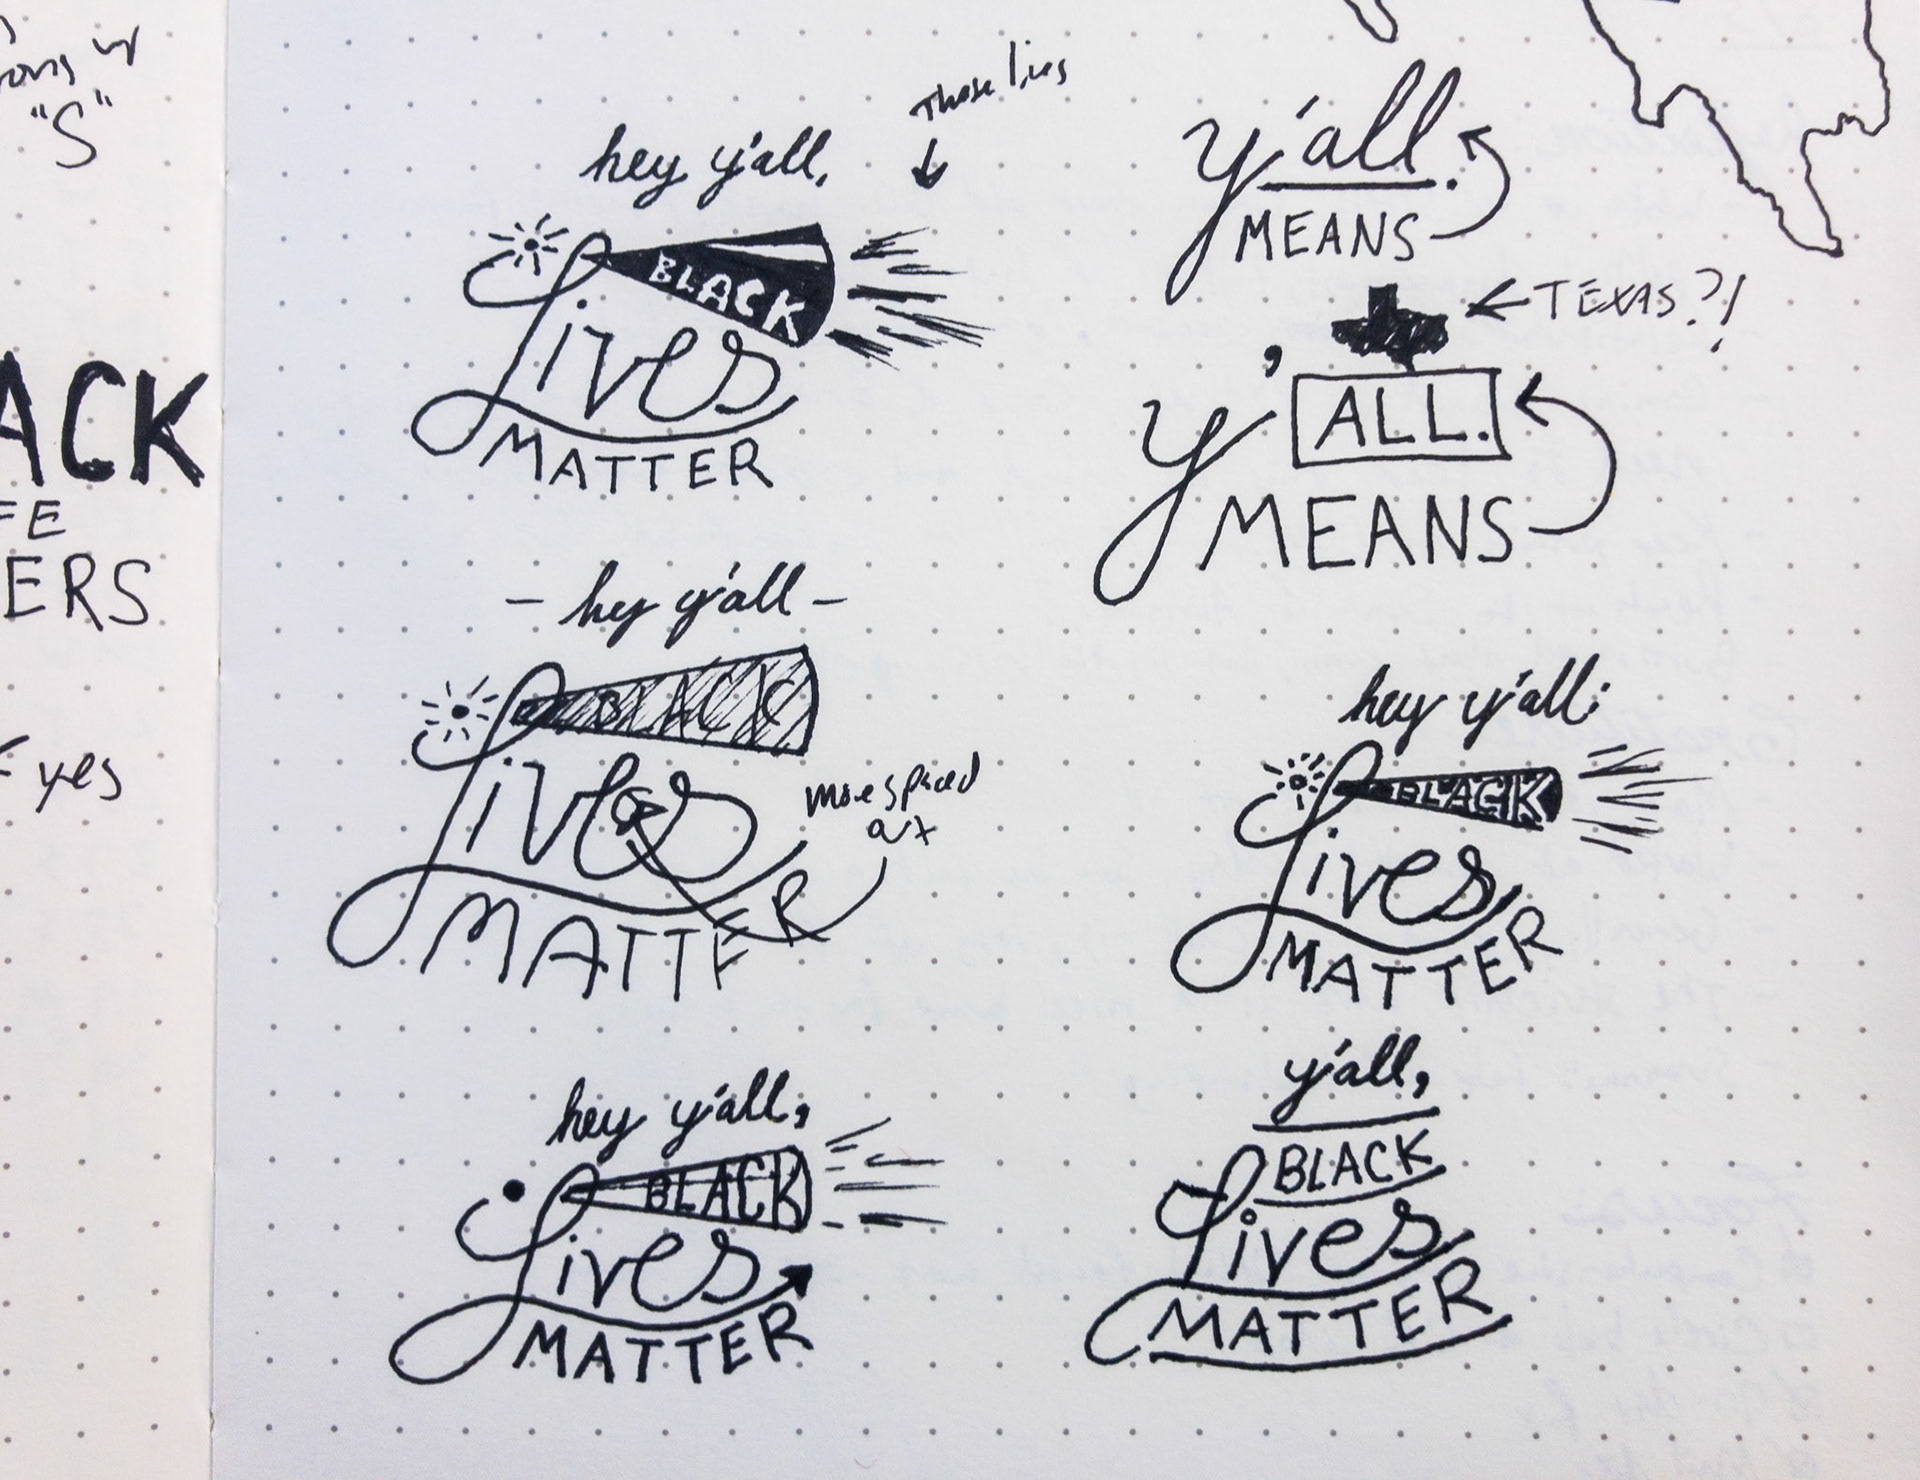 "S"
ACK
FE
ERS
yes
hey y'all,
These lines
BLACK
lives
MATTER
- hey y'all -
BLACK
lives
more spaced
out
MATTER
hey y'all,
BLACK
lives
MATTER
y'all.
MEANS
TEXAS?!
y'ALL.
MEANS
hey y'all:
BLACK
lives
MATTER
y'all,
BLACK
lives
MATTER